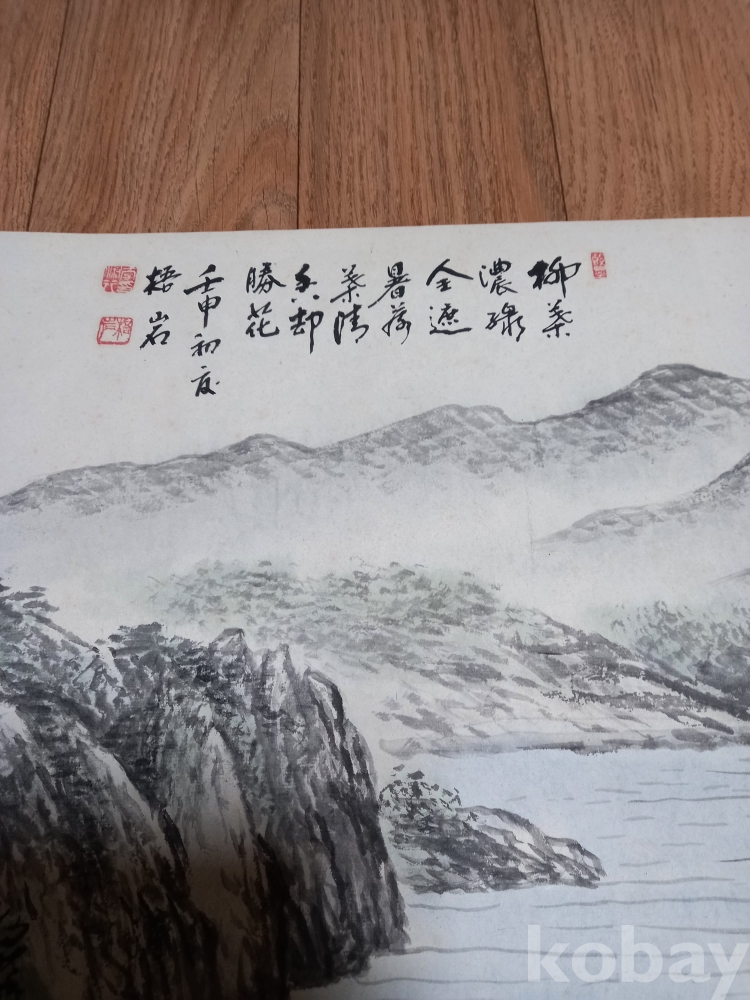 柳葉
濃綠
全遮
暑荷
葉清
香却
勝花
壬申初夏
梧岩
kobay